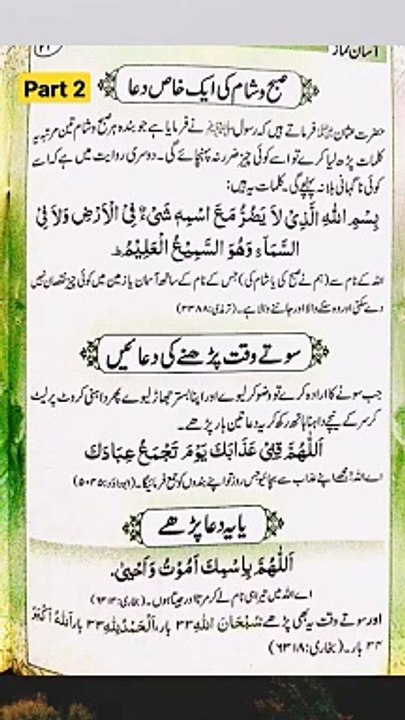 آسان نماز
۲۱
Part 2
صبح و شام کی ایک خاص دعا
حضرت عثمان فرماتے ہیں کہ رسول نے فرمایا ہے جو بندہ ہر صبح و شام تین مرتبہ یہ
کلمات پڑھ لیا کرے تو اسے کوئی چیز ضرر نہ پہنچائے گی۔ دوسری روایت میں ہے کہ اسے
کوئی ناگہانی بلا نہ پہنچے گی۔ کلمات یہ ہیں:
بِسْمِ اللهِ الَّذِیْ لَا یَضُرُّ مَعَ اسْمِهٖ شَیْءٌ فِی الْاَرْضِ وَلَا فِی
السَّمَآءِ وَهُوَ السَّمِیْعُ الْعَلِیْمُ ط
اللہ کے نام سے (ہم نے صبح کی یا شام کی) جس کے نام کے ساتھ آسمان یا زمین میں کوئی چیز نقصان نہیں
دے سکتی اور وہ سننے والا اور جاننے والا ہے۔ (ترمذی: ۳۳۸۸)
سوتے وقت پڑھنے کی دعائیں
جب سونے کا ارادہ کرے تو وضو کر لیوے اور اپنا بستر جھاڑ لیوے پھر داہنی کروٹ پر لیٹ
کر سر کے نیچے داہنا ہاتھ رکھ کر یہ دعا تین بار پڑھے۔
اَللّٰهُمَّ قِنِیْ عَذَابَكَ یَوْمَ تَجْمَعُ عِبَادَكَ
اے اللہ! مجھے اپنے عذاب سے بچائیو جس روز تو اپنے بندوں کو جمع فرمائیگا۔ (ابوداؤد: ۵۰۴۵)
یا یہ دعا پڑھے
اَللّٰهُمَّ بِاسْمِكَ اَمُوْتُ وَاَحْیٰی۔
اے اللہ میں تیرا ہی نام لے کر مرتا اور جیتا ہوں۔ (بخاری: ۶۳۱۴)
اور سوتے وقت یہ بھی پڑھے سُبْحَانَ اللهِ ۳۳ بار، اَلْحَمْدُلِلّٰهِ ۳۳ بار اَللهُ اَكْبَرُ
۳۴ بار۔ (بخاری: ۶۳۱۸)